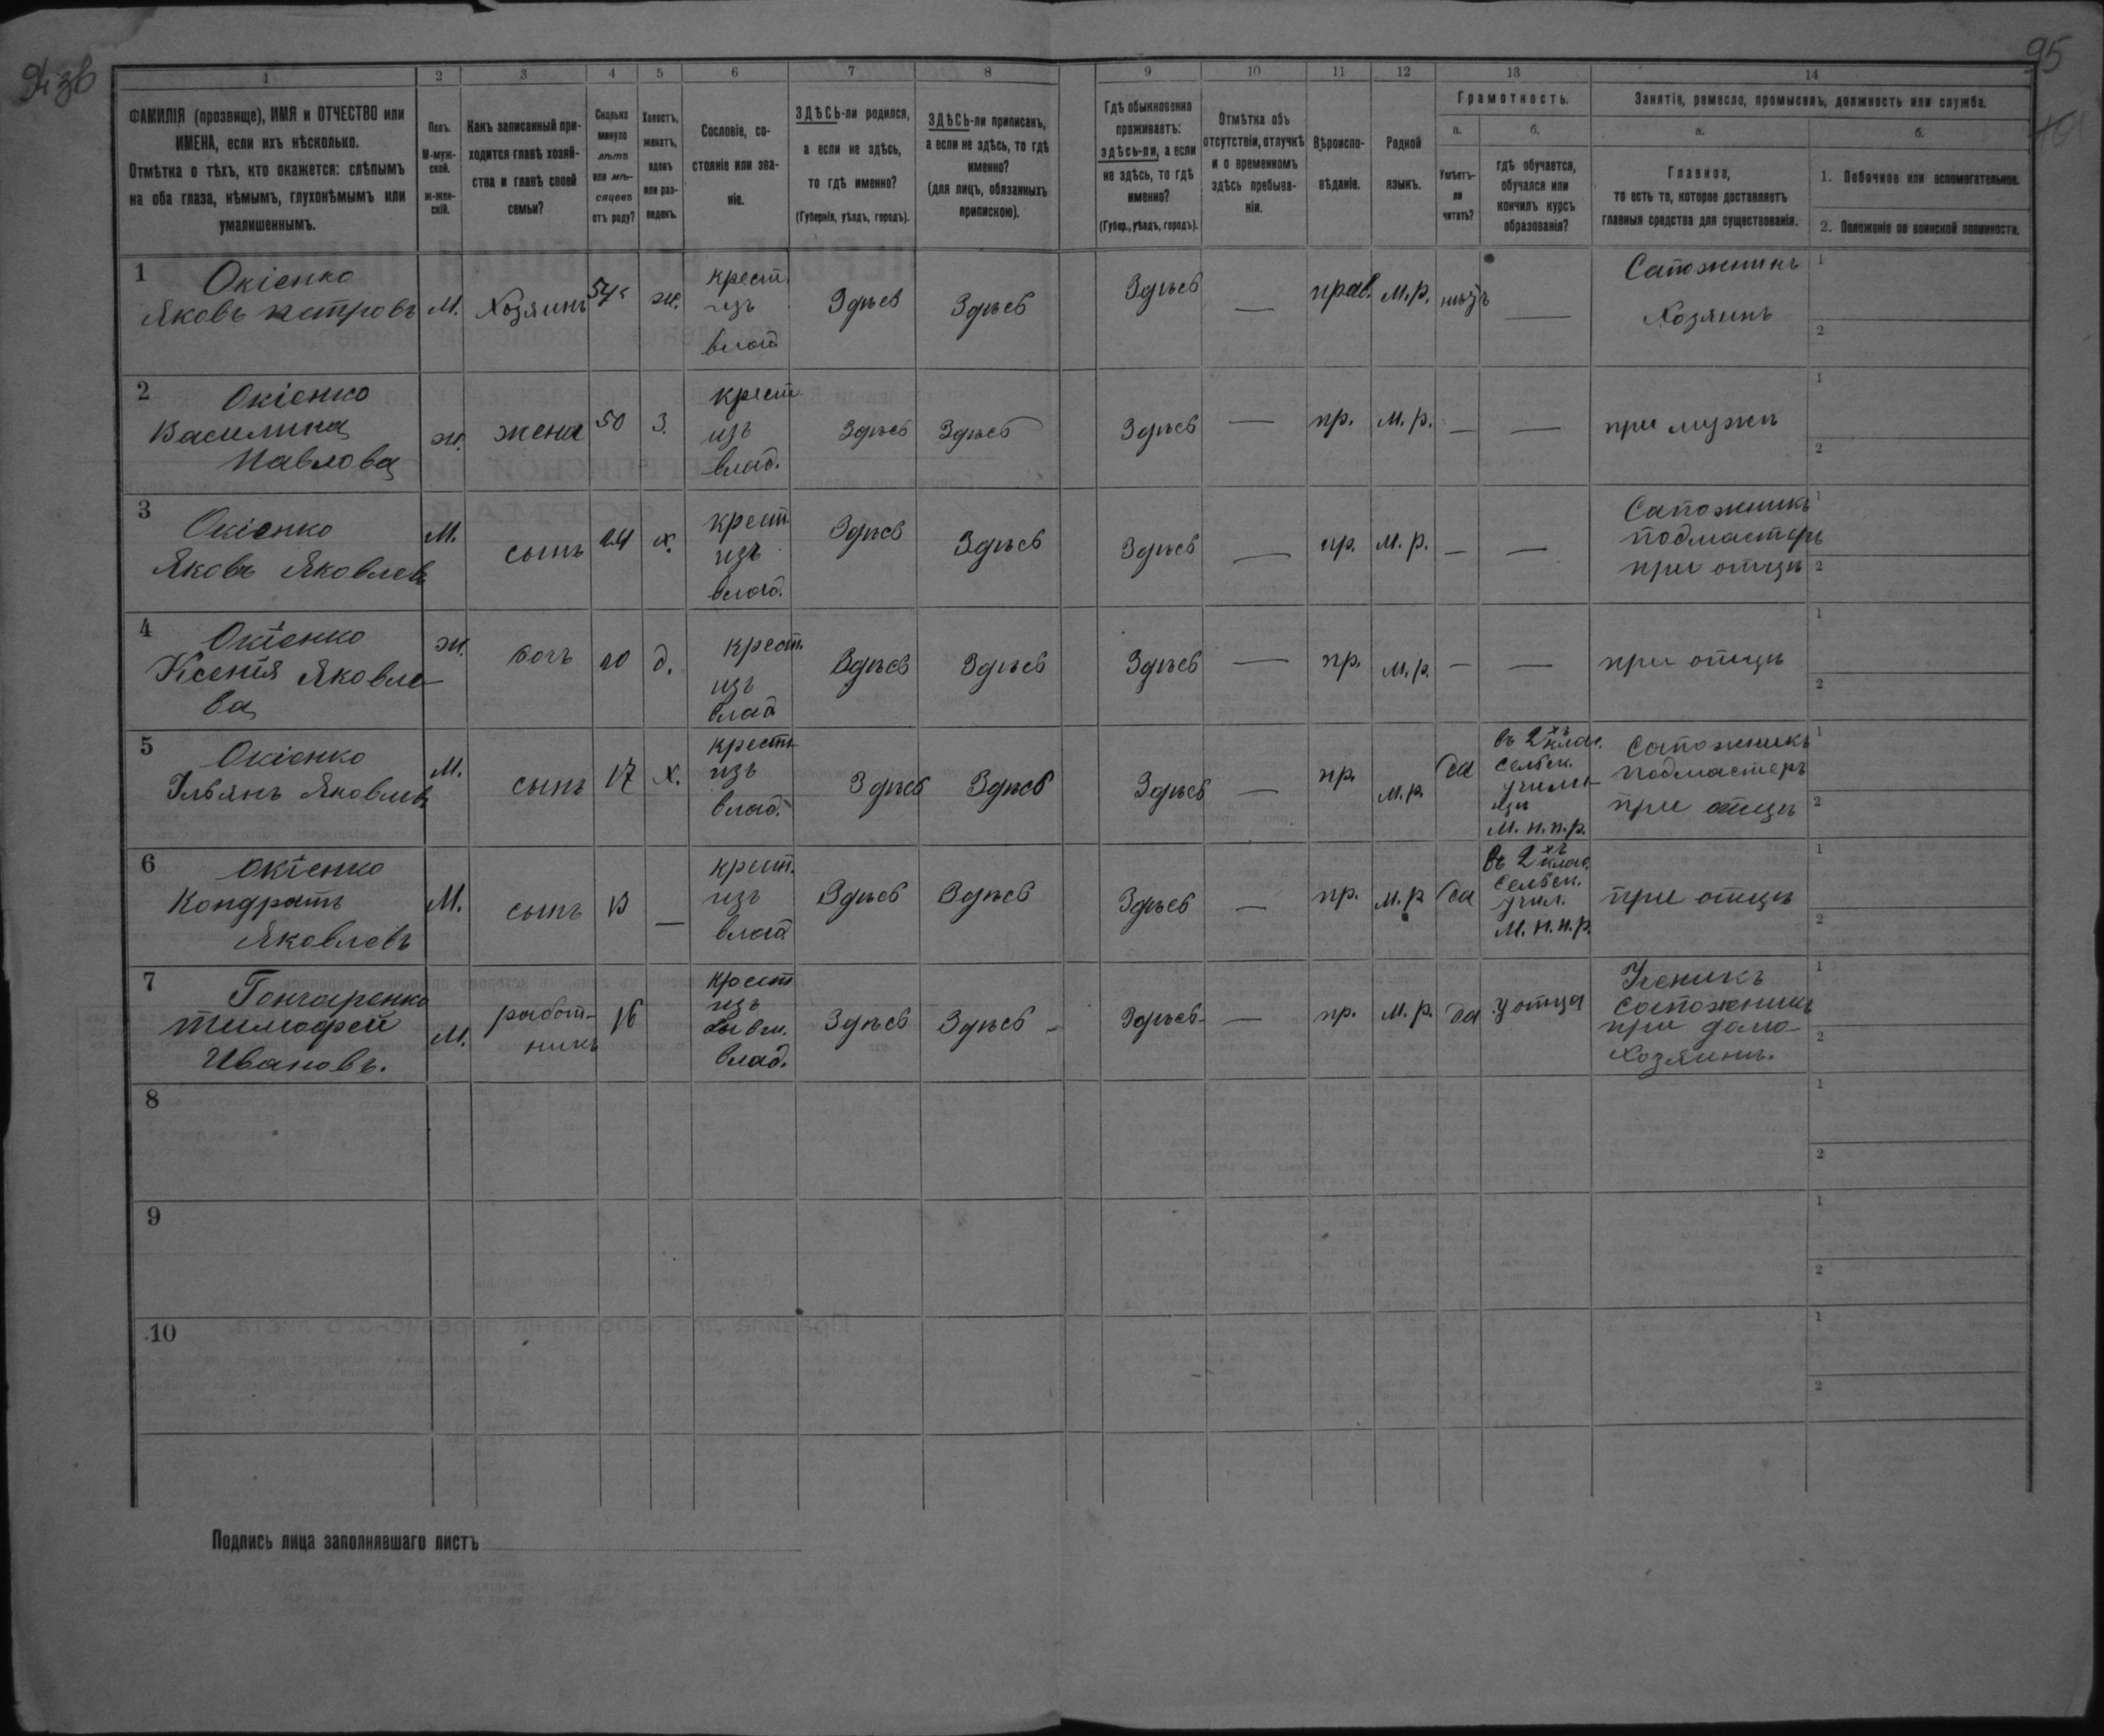 94 зв
95
1 2 3 4 5 6 7 8 9 10 11 12 13 14
ФАМИЛІЯ (прозвище), ИМЯ и ОТЧЕСТВО или
ИМЕНА, если ихъ нѣсколько.
Отмѣтка о тѣхъ, кто окажется: слѣпымъ
на оба глаза, нѣмымъ, глухонѣмымъ или
умалишеннымъ.
Полъ.
М-муж-
ской.
ж-жен-
скій.
Какъ записанный при-
ходится главѣ хозяй-
ства и главѣ своей
семьи?
Сколько
минуло
лѣтъ
или мѣ-
сяцевъ
отъ роду?
Холостъ,
женатъ,
вдовъ
или раз-
веденъ.
Сословіе, со-
стояніе или зва-
ніе.
ЗДѢСЬ-ли родился,
а если не здѣсь,
то гдѣ именно?
(Губернія, уѣздъ, городъ).
ЗДѢСЬ-ли приписанъ,
а если не здѣсь, то гдѣ
именно?
(для лицъ, обязанныхъ
припискою).
Гдѣ обыкновенно
проживаетъ:
здѣсь-ли, а если
не здѣсь, то гдѣ
именно?
(Губер., уѣздъ, городъ).
Отмѣтка объ
отсутствіи, отлучкѣ
и о временномъ
здѣсь пребыва-
ніи.
Вѣроиспо-
вѣданіе.
Родной
языкъ.
Грамотность.
а.
Умѣетъ-
ли
читать?
б.
гдѣ обучается,
обучался или
кончилъ курсъ
образованія?
Занятіе, ремесло, промыселъ, должность или служба.
а.
Главное,
то есть то, которое доставляетъ
главныя средства для существованія.
б.
1. Побочное или вспомогательное.
2. Положеніе по воинской повинности.
1
Окіенко
Яковъ петровъ
М.
Хозяинъ
54
ж.
крест.
изъ
влад
Здѣсь
Здѣсь
Здѣсь
—
прав.
М.р.
нѣтъ
—
Сапожникъ
Хозяинъ
1
2
2
Окіенко
Василина
Павлова
ж.
жена
50
З.
крест.
изъ
влад.
Здѣсь
Здѣсь
Здѣсь
—
пр.
М.р.
—
—
при мужѣ
1
2
3
Окіенко
Яковъ Яковлевъ
М.
сынъ
24
х.
крест.
изъ
влад.
Здѣсь
Здѣсь
Здѣсь
—
пр.
М.р.
—
—
Сапожникъ
подмастеръ
при отцѣ
1
2
4
Окіенко
Ксенія Яковле-
ва
ж.
дочь
20
д.
крест.
изъ
влад
Здѣсь
Здѣсь
Здѣсь
—
пр.
М.р.
—
—
при отцѣ
1
2
5
Окіенко
Ульянъ Яковлевъ
М.
сынъ
17
х.
крестъ
изъ
влад.
Здѣсь
Здѣсь
Здѣсь
—
пр.
М.р.
да
въ 2хъ клас.
Сельск.
учили-
щѣ
М.н.п.р.
Сапожникъ
подмастеръ
при отцѣ
1
2
6
Окіенко
Кондратъ
Яковлевъ
М.
сынъ
13
—
крест.
изъ
влад
Здѣсь
Здѣсь
Здѣсь
—
пр.
М.р
да
въ 2хъ клас.
Сельск.
учил.
М.н.п.р.
при отцѣ
1
2
7
Гончаренко
тимофей
Ивановъ.
М.
работ-
никъ
16
крест
изъ
бывш.
влад.
Здѣсь
Здѣсь
Здѣсь
—
пр.
М.р.
да
у отца
Ученикъ
сапожникъ
при домо-
хозяинѣ.
1
2
8
1
2
9
1
2
10
1
2
Подпись лица заполнявшаго листъ